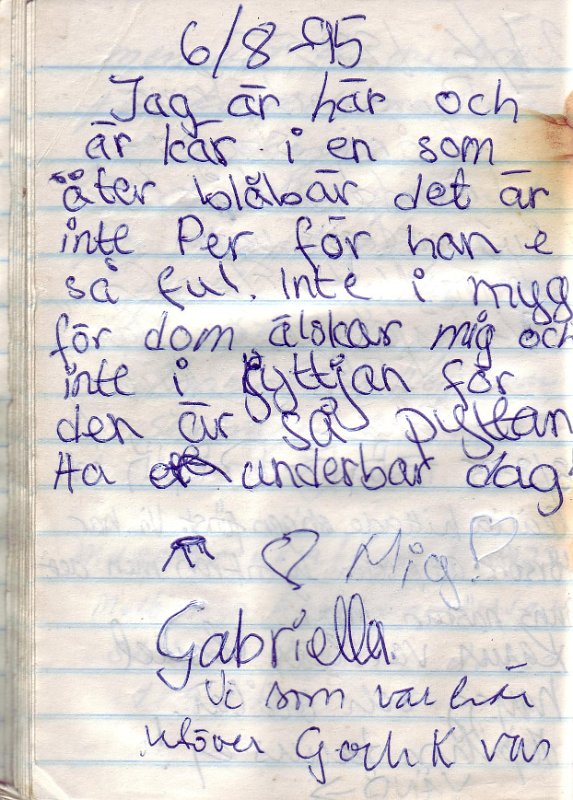 6/8-95
Jag är här och
är kär i en som
äter blåbär det är
inte Per för han e
så ful. Inte i mygg
för dom älskar mig och
inte i gyttjan för
den är så pyttan
Ha underbar dag
Mig!
Gabriella
Vi som var här
utöver G och K var